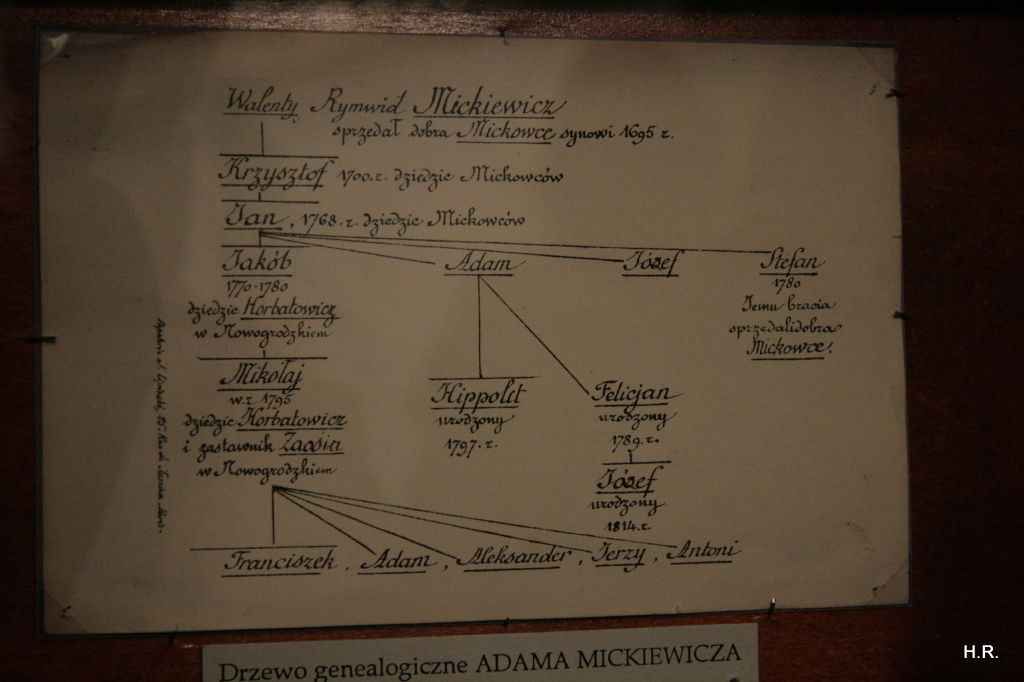 Walenty Rymwid Mickiewicz
sprzedał dobra Mickowce synowi 1695 r.
Krzysztof 1700.r. dziedzic Mickowców
Jan, 1768.r. dziedzic Mickowców
Jakób
1770-1780
dziedzic Horbatowicz
w Nowogrodzkiem
Adam
Józef
Stefan
1780
Jemu bracia
sprzedali dobra
Mickowce.
Mikołaj
w.r. 1795
dziedzic Horbatowicz
i zastawnik Zaosia
w Nowogrodzkiem
Hippolit
urodzony
1797.r.
Felicjan
urodzony
1789.r.
Józef
urodzony
1814.r.
Franciszek, Adam, Aleksander, Jerzy, Antoni
Drzewo genealogiczne ADAMA MICKIEWICZA
H.R.